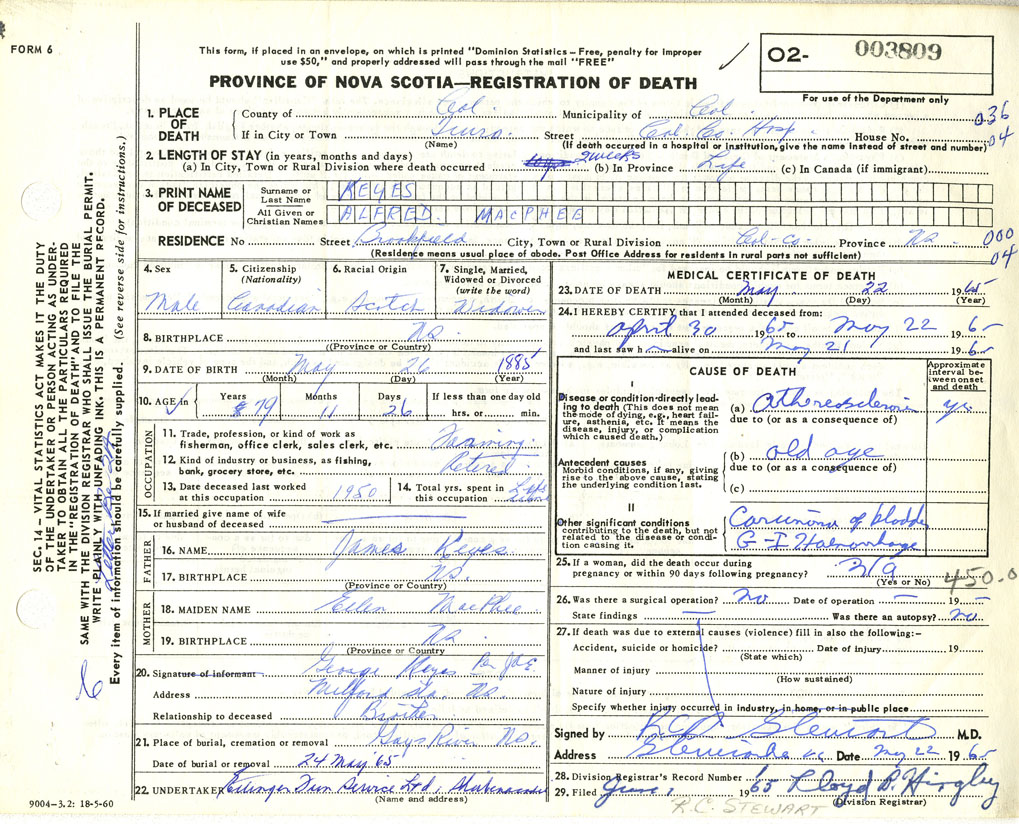 FORM 6
This form, if placed in an envelope, on which is printed "Dominion Statistics – Free, penalty for improper
use $50," and properly addressed will pass through the mail "FREE"
O2- 003809
PROVINCE OF NOVA SCOTIA—REGISTRATION OF DEATH
For use of the Department only
1. PLACE OF DEATH
County of Col. Municipality of Col. 036
If in City or Town Truro. Street Col. Co. Hosp. House No. 04
(Name) (If death occurred in a hospital or institution, give the name instead of street and number)
2. LENGTH OF STAY (in years, months and days)
(a) In City, Town or Rural Division where death occurred 2 weeks (b) In Province Life (c) In Canada (if immigrant)
3. PRINT NAME OF DECEASED
Surname or Last Name KEYES
All Given or Christian Names ALFRED. MACPHEE
RESIDENCE No Street Brookfield City, Town or Rural Division Col-Co. Province NS. 000
(Residence means usual place of abode. Post Office Address for residents in rural parts not sufficient) 04
4. Sex
Male
5. Citizenship
(Nationality)
Canadian
6. Racial Origin
Scotch
7. Single, Married,
Widowed or Divorced
(write the word)
Widower
8. BIRTHPLACE NS.
((Province or Country)
9. DATE OF BIRTH May 26 1885
(Month) (Day) (Year)
10. AGE in Years Months Days If less than one day old
79 11 26 hrs. or min.
OCCUPATION
11. Trade, profession, or kind of work as
fisherman, office clerk, sales clerk, etc. Farming.
12. Kind of industry or business, as fishing,
bank, grocery store, etc. Retired.
13. Date deceased last worked
at this occupation 1950
14. Total yrs. spent in
this occupation Life
15. If married give name of wife
or husband of deceased
FATHER
16. NAME James Keyes
17. BIRTHPLACE NS.
(Province or Country)
MOTHER
18. MAIDEN NAME Ellen MacPhee
19. BIRTHPLACE NS
(Province or Country
20. Signature of informant George Keyes Per
Address Milford Sta. NS.
Relationship to deceased Brother
21. Place of burial, cremation or removal Gays River NS.
Date of burial or removal 24 May '65
22. UNDERTAKER Ettinger Fun Service Ltd, Shubenacadie
(Name and address)
9004-3.2: 18-5-60
MEDICAL CERTIFICATE OF DEATH
23. DATE OF DEATH May 22 1965
(Month) (Day) (Year)
24. I HEREBY CERTIFY that I attended deceased from:
April 30 1965 to May 22 1965
and last saw h alive on May 21 1965
CAUSE OF DEATH
Approximate
interval be-
tween onset
and death
I
Disease or condition directly lead-
ing to death (This does not mean
the mode of dying, e.g., heart fail-
ure, asthenia, etc. It means the
disease, injury, or complication
which caused death.)
(a) Atherosclerosis yr.
due to (or as a consequence of)
Antecedent causes
Morbid conditions, if any, giving
rise to the above cause, stating
the underlying condition last.
(b) old age
due to (or as a consequence of)
(c)
II
Other significant conditions
contributing to the death, but not
related to the disease or condi-
tion causing it.
Carcinoma of bladder
G-I Haemorrhage
25. If a woman, did the death occur during
pregnancy or within 90 days following pregnancy?
(Yes or No) 450.0
26. Was there a surgical operation? no Date of operation – 19
State findings – Was there an autopsy? no
27. If death was due to external causes (violence) fill in also the following:–
Accident, suicide or homicide? Date of injury 19
(State which)
Manner of injury
(How sustained)
Nature of injury
Specify whether injury occurred in industry, in home, or in public place
Signed by R C Stewart M.D.
Address Stewiacke Date May 22 1965
28. Division Registrar's Record Number
29. Filed June 1 '65 Lloyd B. Hingley
R.C. STEWART (Division Registrar)
SEC. 14 – VITAL STATISTICS ACT MAKES IT THE DUTY
OF THE UNDERTAKER OR PERSON ACTING AS UNDER-
TAKER TO OBTAIN ALL THE PARTICULARS REQUIRED
IN THE "REGISTRATION OF DEATH" AND TO FILE THE
SAME WITH THE DIVISION REGISTRAR WHO SHALL ISSUE THE BURIAL PERMIT.
WRITE PLAINLY WITH UNFADING INK. THIS IS A PERMANENT RECORD.
Every item of information should be carefully supplied. (See reverse side for instructions.)